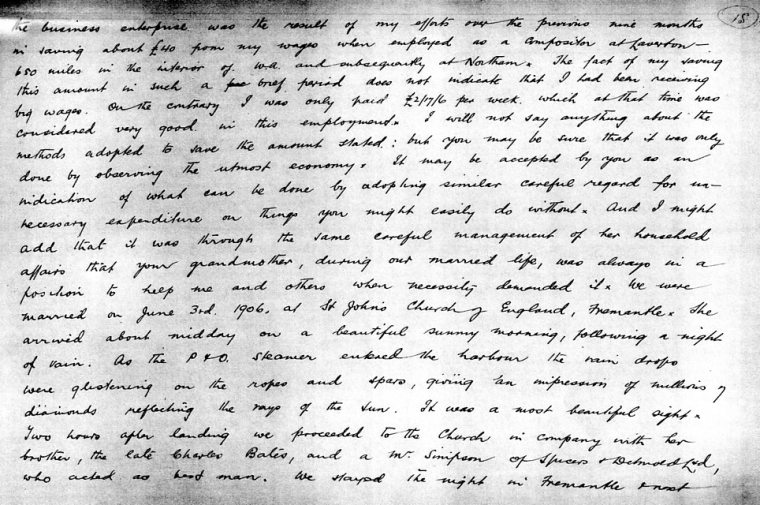 18
the business enterprise was the result of my efforts over the previous nine months
in saving about £40 from my wages when employed as a compositor at Laverton –
650 miles in the interior of W.A. and subsequently at Northam. The fact of my saving
this amount in such a brief period does not indicate that I had been receiving
big wages. On the contrary I was only paid £2/7/6 per week. which at that time was
considered very good in this employment. I will not say anything about the
methods adopted to save the amount stated: but you may be sure that it was only
done by observing the utmost economy. It may be accepted by you as an
indication of what can be done by adopting similar careful regard for un-
necessary expenditure on things you might easily do without. And I might
add that it was through the same careful management of her household
affairs that your grandmother, during our married life, was always in a
position to help me and others when necessity demanded it. We were
married on June 3rd. 1906, at St Johns Church of England, Fremantle. She
arrived about midday on a beautiful sunny morning, following a night
of rain. As the P & O. steamer entered the harbour the rain drops
were glistening on the ropes and spars, giving an impression of millions of
diamonds reflecting the rays of the sun. It was a most beautiful sight.
Two hours after landing we proceeded to the Church in company with her
brother, the late Charles Bates, and a Mr. Simpson of Spicers & Detmold Ltd,
who acted as best man. We stayed the night in Fremantle & next